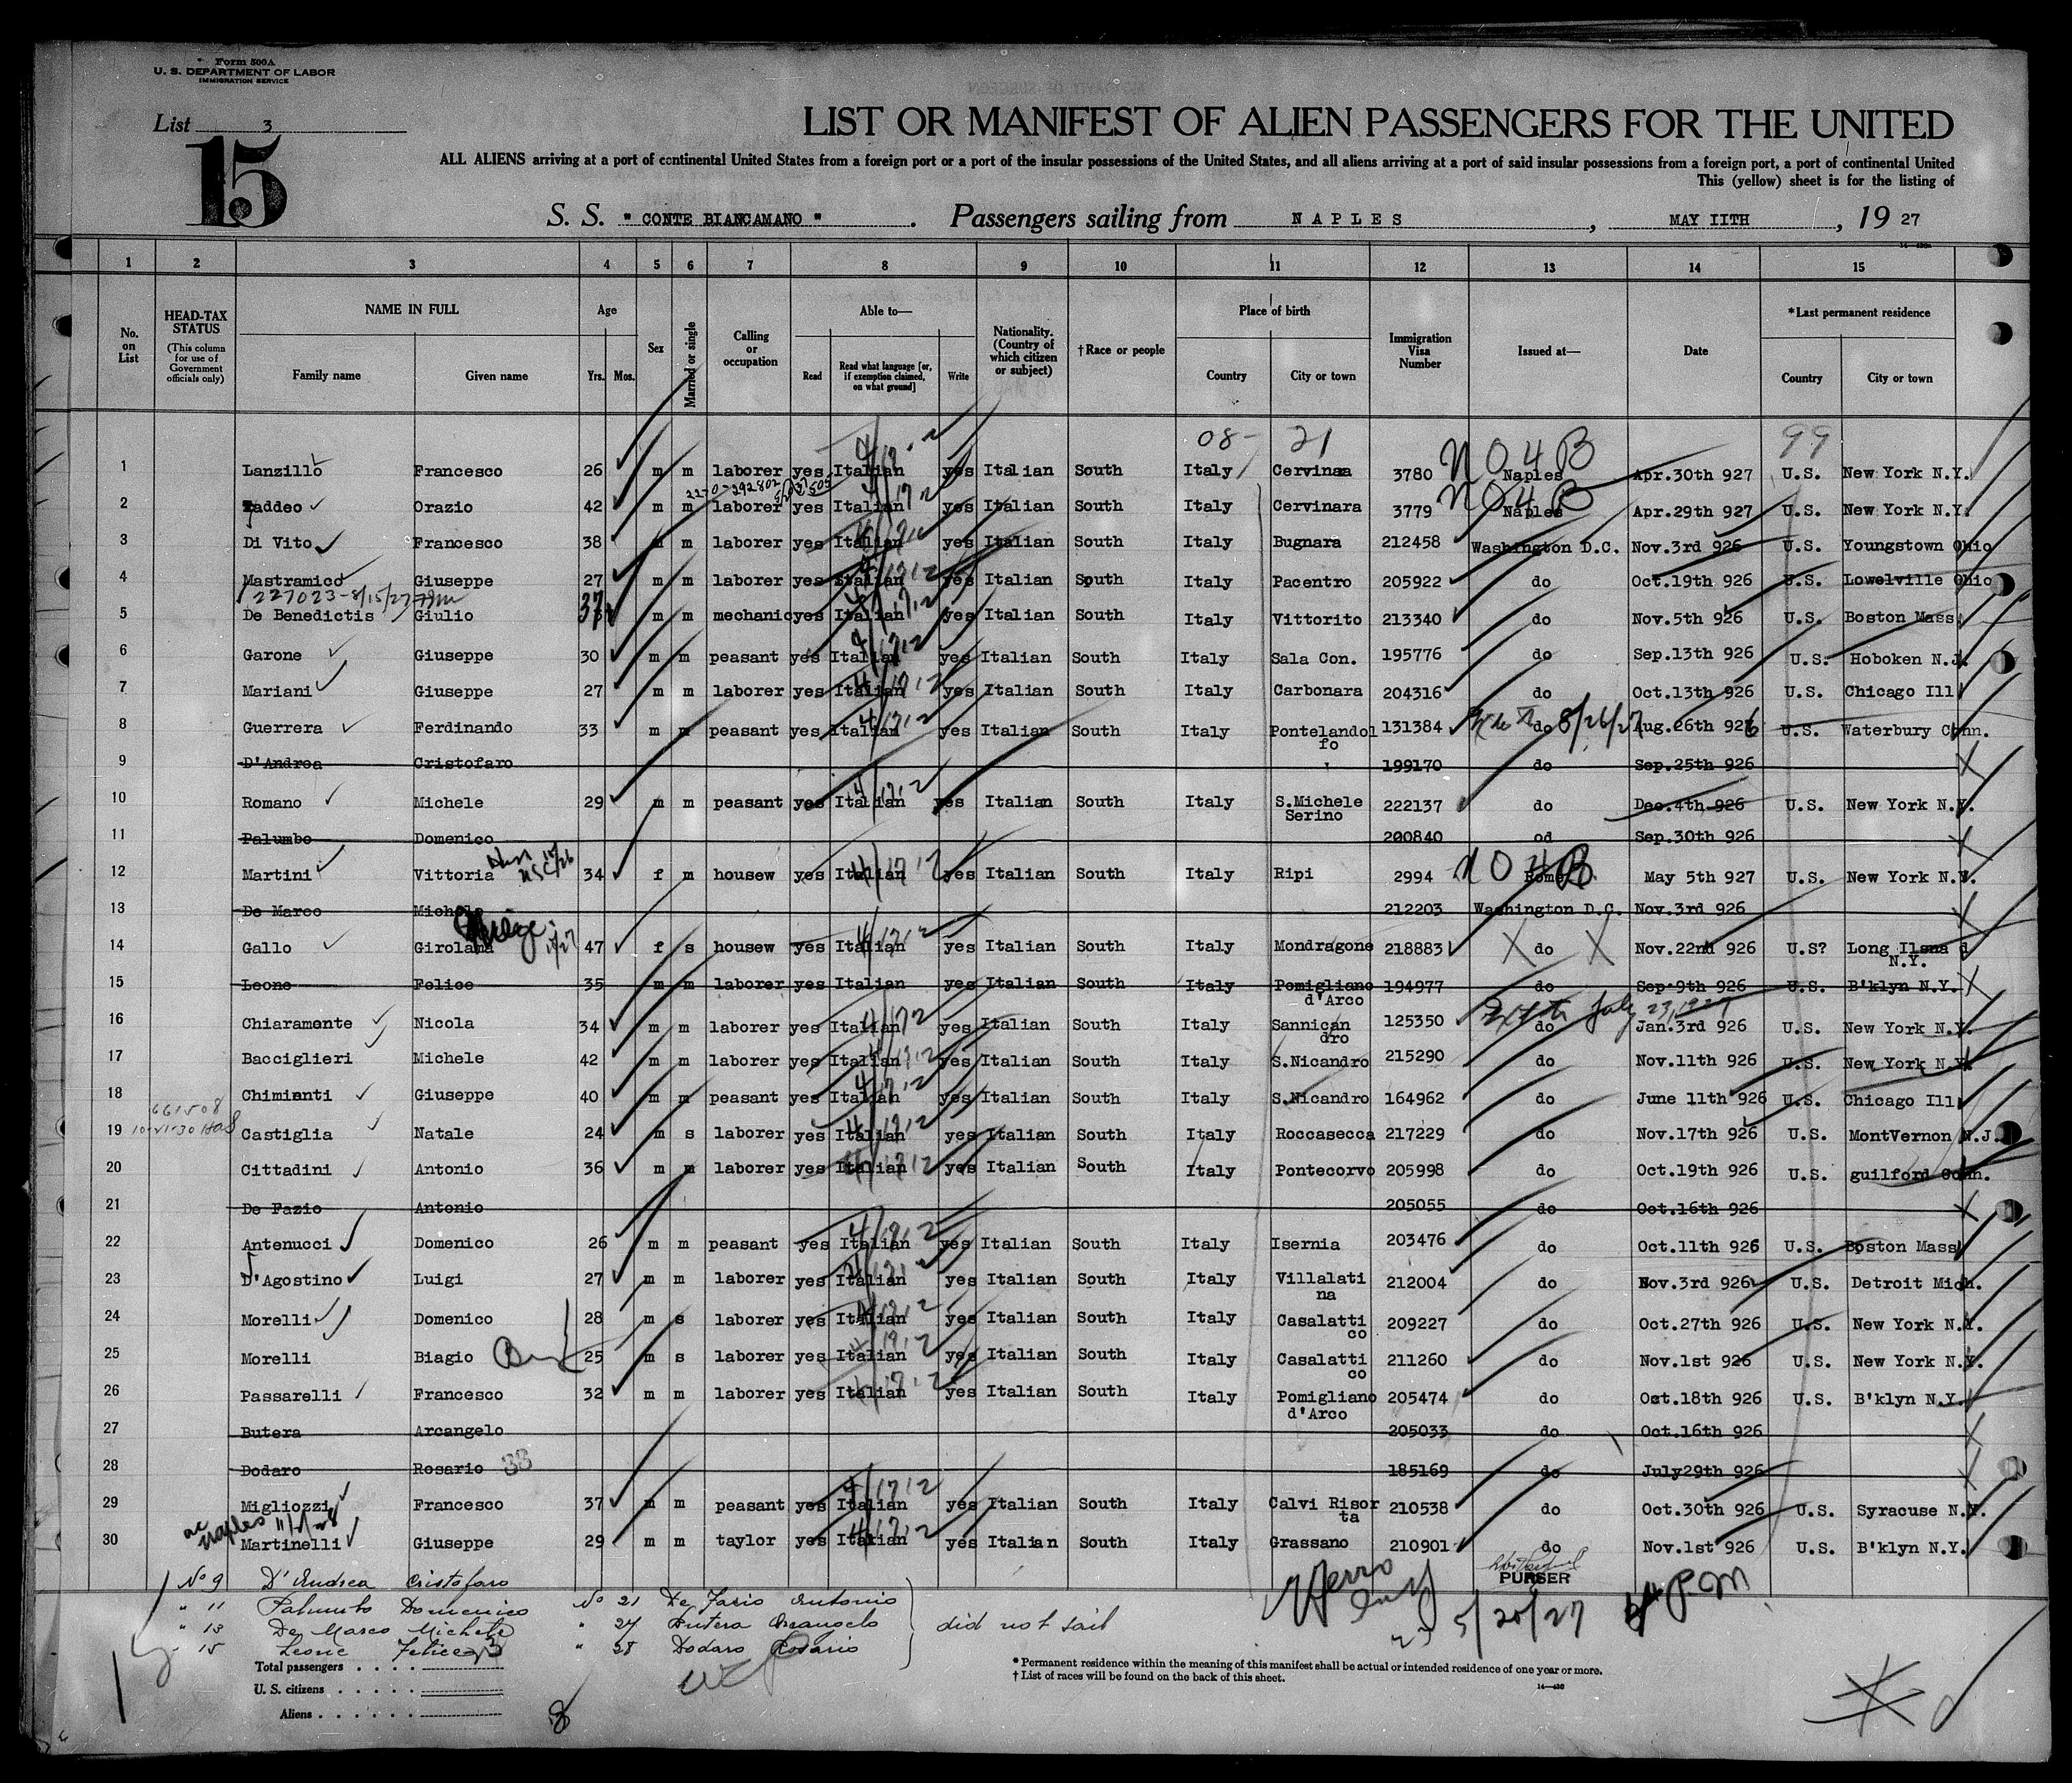 Form 500A
U. S. DEPARTMENT OF LABOR
IMMIGRATION SERVICE
List 3
15
LIST OR MANIFEST OF ALIEN PASSENGERS FOR THE UNITED
ALL ALIENS arriving at a port of continental United States from a foreign port or a port of the insular possessions of the United States, and all aliens arriving at a port of said insular possessions from a foreign port, a port of continental United
This (yellow) sheet is for the listing of
S. S. " CONTE BIANCAMANO " . Passengers sailing from NAPLES , MAY IITH , 19 27
1 2 3 4 5 6 7 8 9 10 11 12 13 14 15
No. on List
HEAD-TAX STATUS (This column for use of Government officials only)
NAME IN FULL Family name Given name
Age Yrs. Mos.
Sex
Married or single
Calling or occupation
Able to— Read Read what language [or, if exemption claimed, on what ground] Write
Nationality. (Country of which citizen or subject)
†Race or people
Place of birth Country City or town
Immigration Visa Number
Issued at—
Date
*Last permanent residence Country City or town
08- 21 99
1 Lanzillo Francesco 26 m m laborer yes Italian yes Italian South Italy Cervinaa 3780 NO4B Naples Apr.30th 927 U.S. New York N.Y.
2 Taddeo Orazio 42 m m laborer yes Italian yes Italian South Italy Cervinara 3779 NO4B Naples Apr.29th 927 U.S. New York N.Y.
3 Di Vito Francesco 38 m m laborer yes Italian yes Italian South Italy Bugnara 212458 Washington D.C. Nov.3rd 926 U.S. Youngstown Ohio
4 Mastramico Giuseppe 27 m m laborer yes Italian yes Italian South Italy Pacentro 205922 do Oct.19th 926 U.S. Lowelville Ohio
227023-8/15/27
5 De Benedictis Giulio 37 m m mechanic yes Italian yes Italian South Italy Vittorito 213340 do Nov.5th 926 U.S. Boston Mass.
6 Garone Giuseppe 30 m m peasant yes Italian yes Italian South Italy Sala Con. 195776 do Sep.13th 926 U.S. Hoboken N.J.
7 Mariani Giuseppe 27 m m laborer yes Italian yes Italian South Italy Carbonara 204316 do Oct.13th 926 U.S. Chicago Ill
8 Guerrera Ferdinando 33 m m peasant yes Italian yes Italian South Italy Pontelandol fo 131384 do 8/26/27 Aug.26th 926 U.S. Waterbury Conn.
9 D'Andrea Cristofaro 199170 do Sep.25th 926
10 Romano Michele 29 m m peasant yes Italian yes Italian South Italy S.Michele Serino 222137 do Dec.4th 926 U.S. New York N.Y.
11 Palumbo Domenico 200840 od Sep.30th 926
12 Martini Vittoria 34 f m housew yes Italian yes Italian South Italy Ripi 2994 NO4B Rome May 5th 927 U.S. New York N.Y.
13 De Marco Michele 212203 Washington D.C. Nov.3rd 926
14 Gallo Girolama 47 f s housew yes Italian yes Italian South Italy Mondragone 218883 X do X Nov.22nd 926 U.S? Long Ilsna d N.Y.
15 Leone Felice 35 m m laborer yes Italian yes Italian South Italy Pomigliano d'Arco 194977 do Sep.9th 926 U.S. B'klyn N.Y.
16 Chiaramonte Nicola 34 m m laborer yes Italian yes Italian South Italy Sannican dro 125350 do July 23, 1927 Jan.3rd 926 U.S. New York N.Y.
17 Bacciglieri Michele 42 m m laborer yes Italian yes Italian South Italy S.Nicandro 215290 do Nov.11th 926 U.S. New York N.Y.
18 Chimienti Giuseppe 40 m m peasant yes Italian yes Italian South Italy S.Nicandro 164962 do June 11th 926 U.S. Chicago Ill
661508
19 Castiglia Natale 24 m s laborer yes Italian yes Italian South Italy Roccasecca 217229 do Nov.17th 926 U.S. MontVernon N.J.
20 Cittadini Antonio 36 m m laborer yes Italian yes Italian South Italy Pontecorvo 205998 do Oct.19th 926 U.S. guilford Conn.
21 De Fazio Antonio 205055 do Oct.16th 926
22 Antenucci Domenico 26 m m peasant yes Italian yes Italian South Italy Isernia 203476 do Oct.11th 926 U.S. Boston Mass
23 D'Agostino Luigi 27 m m laborer yes Italian yes Italian South Italy Villalati na 212004 do Nov.3rd 926 U.S. Detroit Mich.
24 Morelli Domenico 28 m s laborer yes Italian yes Italian South Italy Casalatti co 209227 do Oct.27th 926 U.S. New York N.Y.
25 Morelli Biagio 25 m s laborer yes Italian yes Italian South Italy Casalatti co 211260 do Nov.1st 926 U.S. New York N.Y.
26 Passarelli Francesco 32 m m laborer yes Italian yes Italian South Italy Pomigliano d'Arco 205474 do Oct.18th 926 U.S. B'klyn N.Y.
27 Butera Arcangelo 205033 do Oct.16th 926
28 Dodaro Rosario 33 185169 do July29th 926
29 Migliozzi Francesco 37 m m peasant yes Italian yes Italian South Italy Calvi Risor ta 210538 do Oct.30th 926 U.S. Syracuse N.Y.
30 Martinelli Giuseppe 29 m m taylor yes Italian yes Italian South Italy Grassano 210901 do Nov.1st 926 U.S. B'klyn N.Y.
PURSER
No 9 D'Andrea Cristofaro
" 11 Palumbo Domenico No 21 De Fazio Antonio
" 13 De Marco Michele " 27 Butera Arcangelo did not sail
" 15 Leone Felice " 28 Dodaro Rosario
5/20/27 PM
Total passengers . . . .
U. S. citizens . . . . .
Aliens . . . . . .
* Permanent residence within the meaning of this manifest shall be actual or intended residence of one year or more.
† List of races will be found on the back of this sheet.